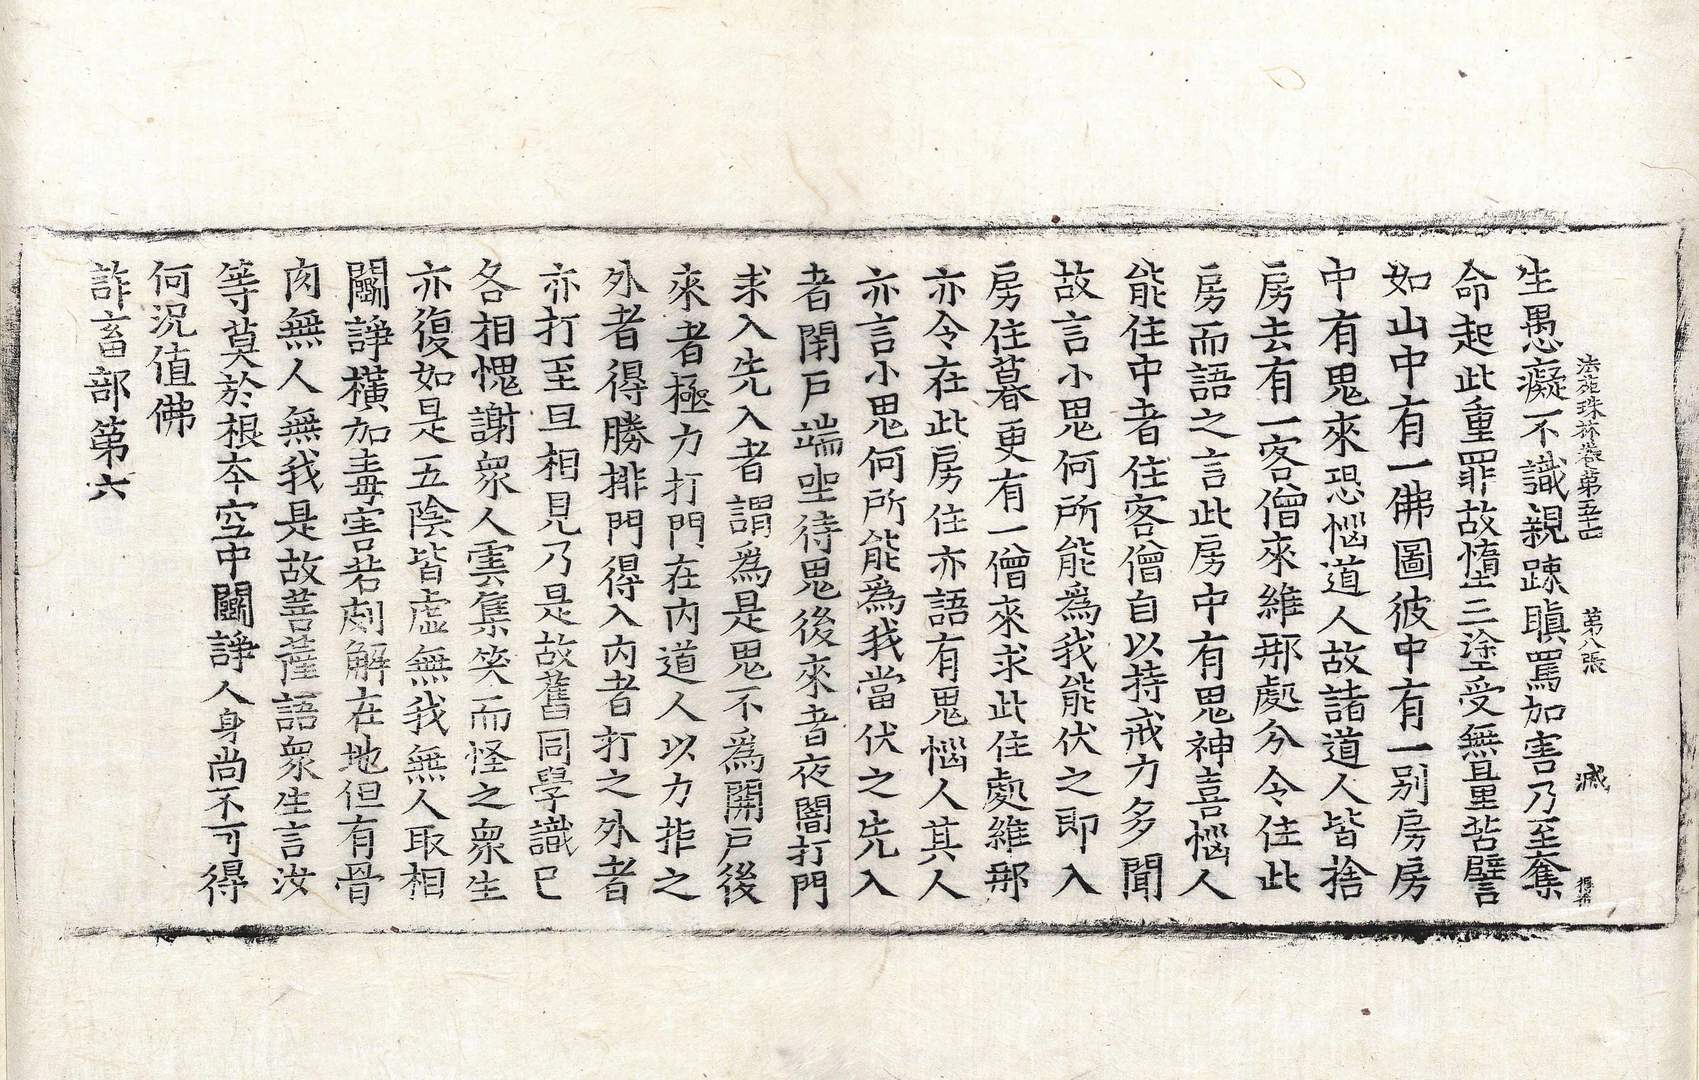 法苑珠林卷第五十四 第八張 滅
生愚癡不識親踈瞋罵加害乃至奪
命起此重罪故墮三塗受無量苦譬
如山中有一佛圖彼中有一別房房
中有鬼來恐惱道人故諸道人皆捨
房去有一客僧來維那處分令住此
房而語之言此房中有鬼神喜惱人
能住中者住客僧自以持戒力多聞
故言小鬼何所能爲我能伏之即入
房住暮更有一僧來求此住處維那
亦令在此房住亦語有鬼惱人其人
亦言小鬼何所能爲我當伏之先入
者閇戶端坐待鬼後來者夜闇打門
求入先入者謂爲是鬼不爲開戶後
來者極力打門在內道人以力拒之
外者得勝排門得入內者打之外者
亦打至旦相見乃是故舊同學識已
各相愧謝衆人雲集笑而怪之衆生
亦復如是五陰皆虛無我無人取相
鬪諍橫加毒害若刻解在地但有骨
肉無人無我是故菩薩語衆生言汝
等莫於根本空中鬪諍人身尚不可得
何況值佛
詐畜部第六